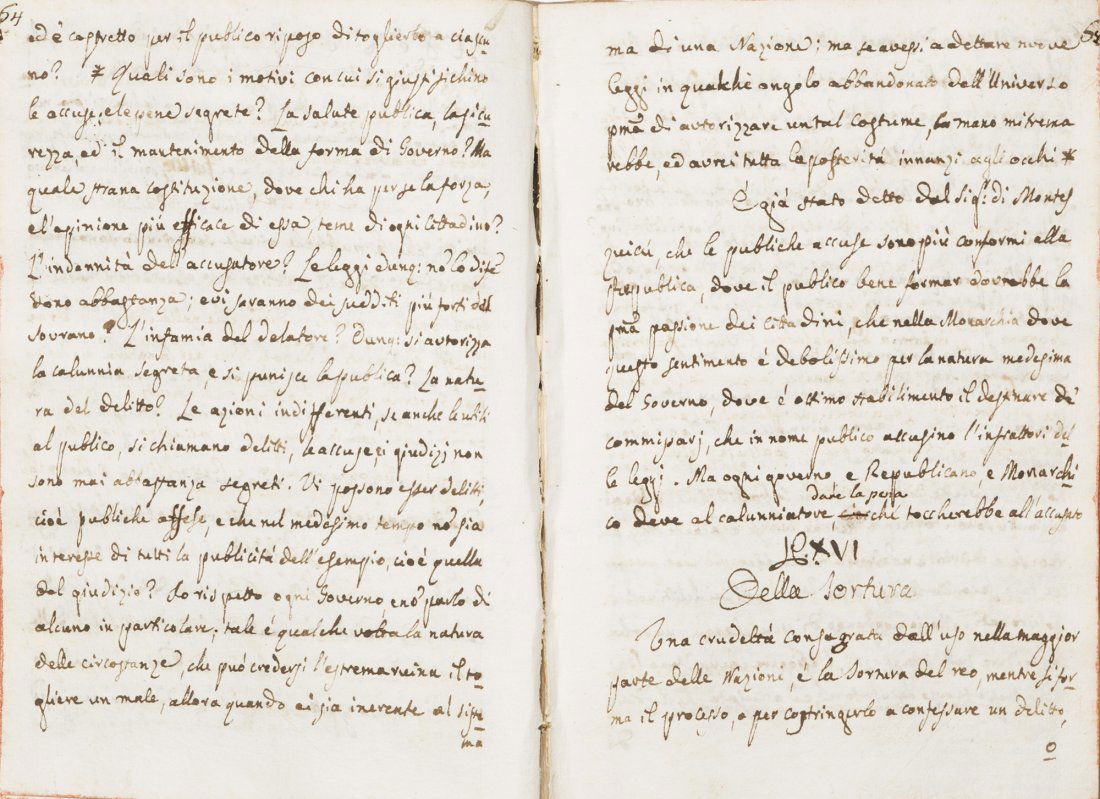 64
ed è costretto per il publico riposo di toglierlo a ciascu
no? * Quali sono i motivi con cui si giustifichino
le accuse, e le pene segrete? La salute publica, la sicu
rezza, ed il mantenimento della forma di Governo? Ma
quale strana costituzione, dove chi ha per se la forza,
e l'opinione più efficace di essa, teme di ogni Cittadino?
L'indennità dell'accusatore? Le leggi dunq: nō lo difē
dono abbastanza; e vi saranno dei sudditi più forti del
sovrano? L'infamia del delatore? Dunq: si autorizza
la calunnia segreta, e si punisce la publica? La natu
ra del delitto? Le azioni indifferenti, se anche le utili
al publico, si chiamano delitti, le accuse, i giudizj non
sono mai abbastanza segreti. Vi possono esser delitti,
cioè publiche offese, e che nel medesimo tempo nō sia
interesse di tutti la publicità dell'esempio, cioè quella
del giudizio? Io rispetto ogni Governo, e nō parlo di
alcuno in particolare; tale è qualche volta la natura
delle circostanze, che può credersi l'estrema ruina il to
gliere un male, allora quando ei sia inerente al siste
ma
65
ma di una Nazione; ma se avessi a dettare nuove
leggi in qualche angolo abbandonato dell'Universo
pmā di autorizzare un tal costume, la mano mi trema
rebbe, ed avrei tutta la posterità innanzi agli occhi *
È già stato detto dal Sigr. di Montes
quieù, che le publiche accuse sono più conformi alla
Republica, dove il publico bene formar dovrebbe la
pmā passione dei Cittadini, che nella Monarchia dove
questo sentimento è debolissimo per la natura medesima
del Governo, dove è ottimo stabilimento il destinare de'
commissarj, che in nome publico accusino l'infrattori del
le leggi. Ma ogni governo e Republicano, e Monarchi
dare la pena
co deve al calunniatore, che toccherebbe all'accusato
XVI
Della Tortura
Una crudeltà consagrata dall'uso nella maggior
parte delle Nazioni, è la Tortura del reo, mentre si for
ma il processo, o per costringerlo a confessare un delitto,
o